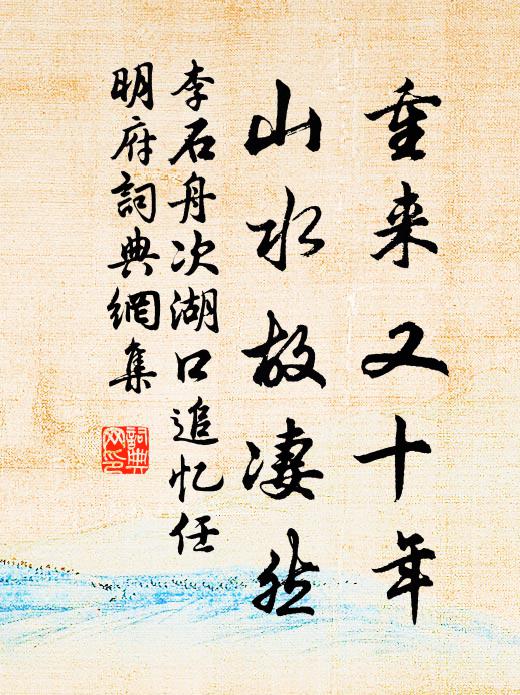 重来又十年
山水故凄然
李石舟次湖口追忆任
明府詞典網集
詞典
网印